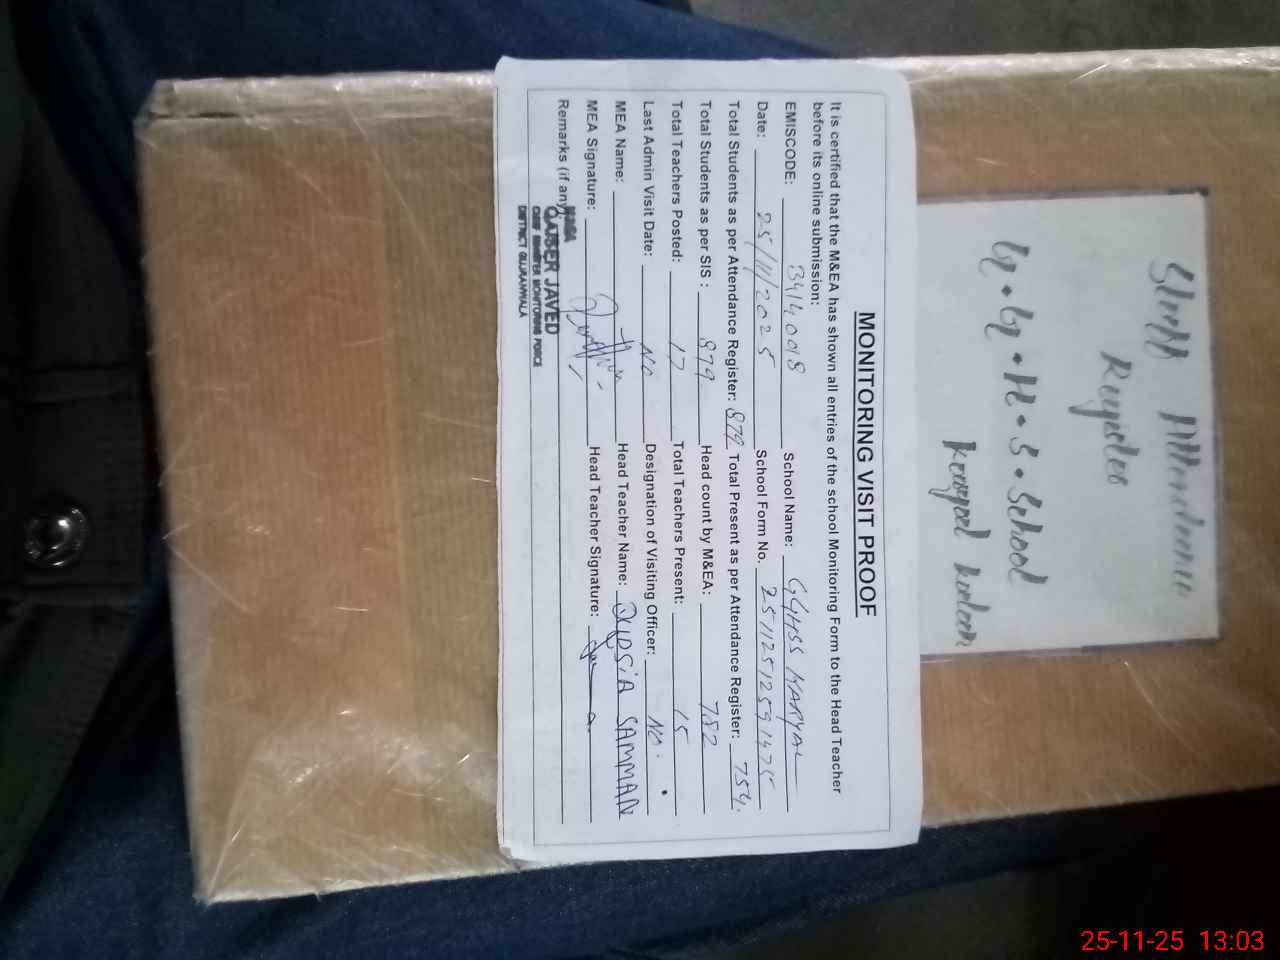 Staff Attendance
Register
G.G.H.S.School
MONITORING VISIT PROOF
It is certified that the M&EA has shown all entries of the school Monitoring Form to the Head Teacher
before its online submission:
EMISCODE: 3414098 School Name: GGHSS KARYAL
Date: 25/11/2025 School Form No. 25112512591475
Total Students as per Attendance Register: 879 Total Present as per Attendance Register: 754.
Total Students as per SIS: 879 Head count by M&EA: 752
Total Teachers Posted: 17 Total Teachers Present: 15
Last Admin Visit Date: NO Designation of Visiting Officer: NO.
MEA Name: Head Teacher Name: SAMMAN
MEA Signature: Head Teacher Signature:
Remarks (if any)
QAISER JAVED
CHIEF MINISTER MONITORING FORCE
DISTRICT GUJRANWALA
25-11-25 13:03